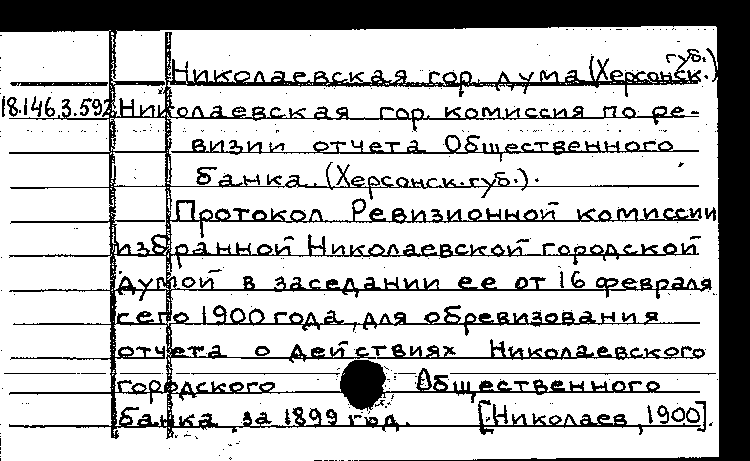 Николаевская гор. дума (Херсонск. губ.)
18.146.3.592 Николаевская гор. комиссия по ре-
визии отчета Общественного
банка (Херсонск. губ.).
Протокол Ревизионной комиссии
избранной Николаевской городской
думой в заседании ее от 16 февраля
сего 1900 года, для обревизования
отчета о действиях Николаевского
городского Общественного
банка за 1899 год. [Николаев, 1900].